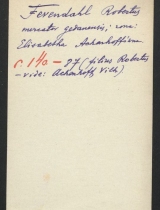 Ferendahl Robertus
mercator gedanensis; uxor:
Elisabetha Achenhoffiana
r 140 - 97 (filius Robertus
- vide: Achenhoff, Vilh)